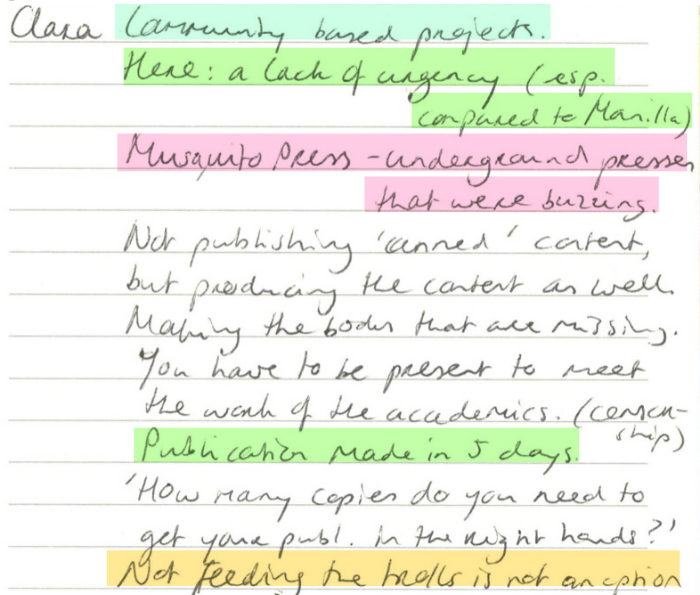 Clara Community based projects.
Here: a lack of urgency (esp.
compared to Manilla)
Musquito Press - underground presses
that were buzzing.
Not publishing 'canned' content,
but producing the content as well.
Making the books that are missing.
You have to be present to meet
the work of the academics. (censor-
ship)
Publication made in 5 days.
'How many copies do you need to
get your publ. in the right hands?'
Not feeding the trolls is not an option